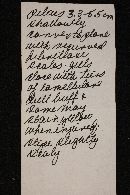 Pileus 3.3-5.5 cm
Shallowly
convex to plane
with recurved
Scales. Gills
close with tiers
of lamellulae
Buff buff &
Some may
stain yellow
when injured.
Stipe slightly
Scaly